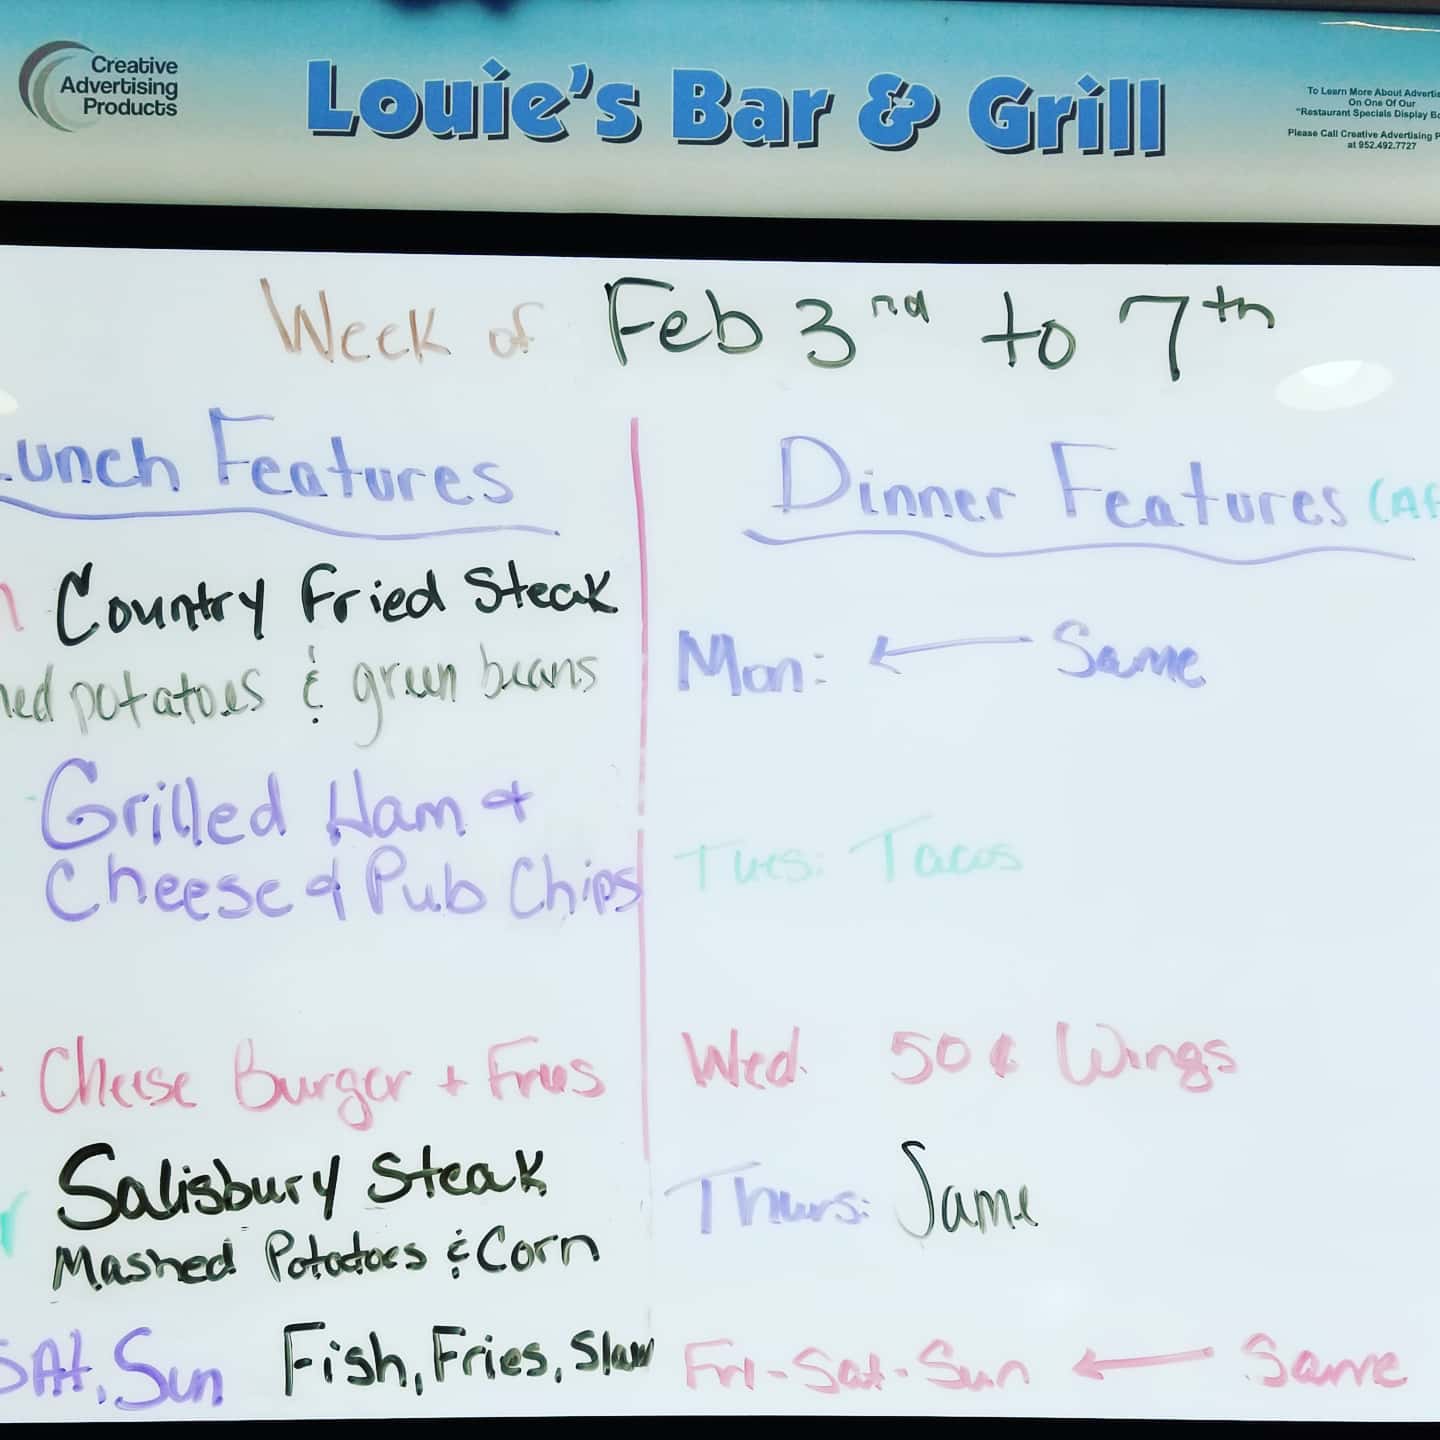 Creative
Advertising
Products
Louie's Bar & Grill
To Learn More About Advertis
On One Of Our
"Restaurant Specials Display Bo
Please Call Creative Advertising P
at 952.492.7727
Week of Feb 3rd to 7th
Lunch Features
Country Fried Steak
hed potatoes & green beans
Grilled Ham &
Cheese & Pub Chips
Cheese Burger + Fries
Salisbury Steak
Mashed Potatoes & Corn
SAt, Sun Fish, Fries, Slaw
Dinner Features (Af
Mon: ← Same
Tues: Tacos
Wed. 50¢ Wings
Thurs: Same
Fri-Sat-Sun ← Same